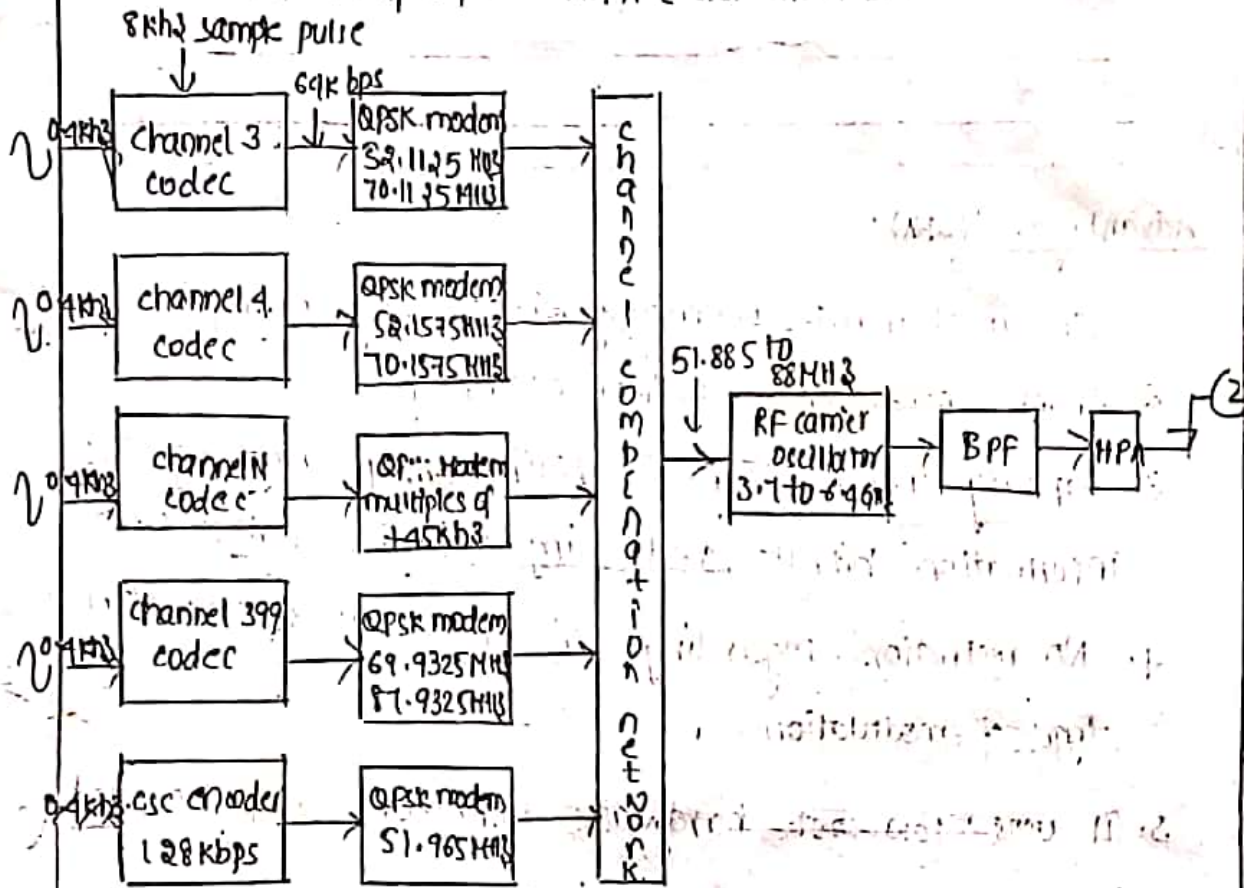 8Khz sample pulse
64K bps
0-4Khz
channel 3
codec
QPSK modem
32.1125 MHz
70.1125MHz
0-4Khz
channel 4
codec
QPSK modem
52.1575MHz
70.1575MHz
0-4Khz
channel N
codec
Modem
multiples of
+45Khz
0-4Khz
channel 399
codec
QPSK modem
69.9325MHz
87.9325MHz
0-4Khz
csc encoder
128Kbps
QPSK modem
51.965MHz
channel combination network
51.885 to
88MHz
RF carrier
oscillator
3.7 to 6.4GHz
BPF
HPA
2